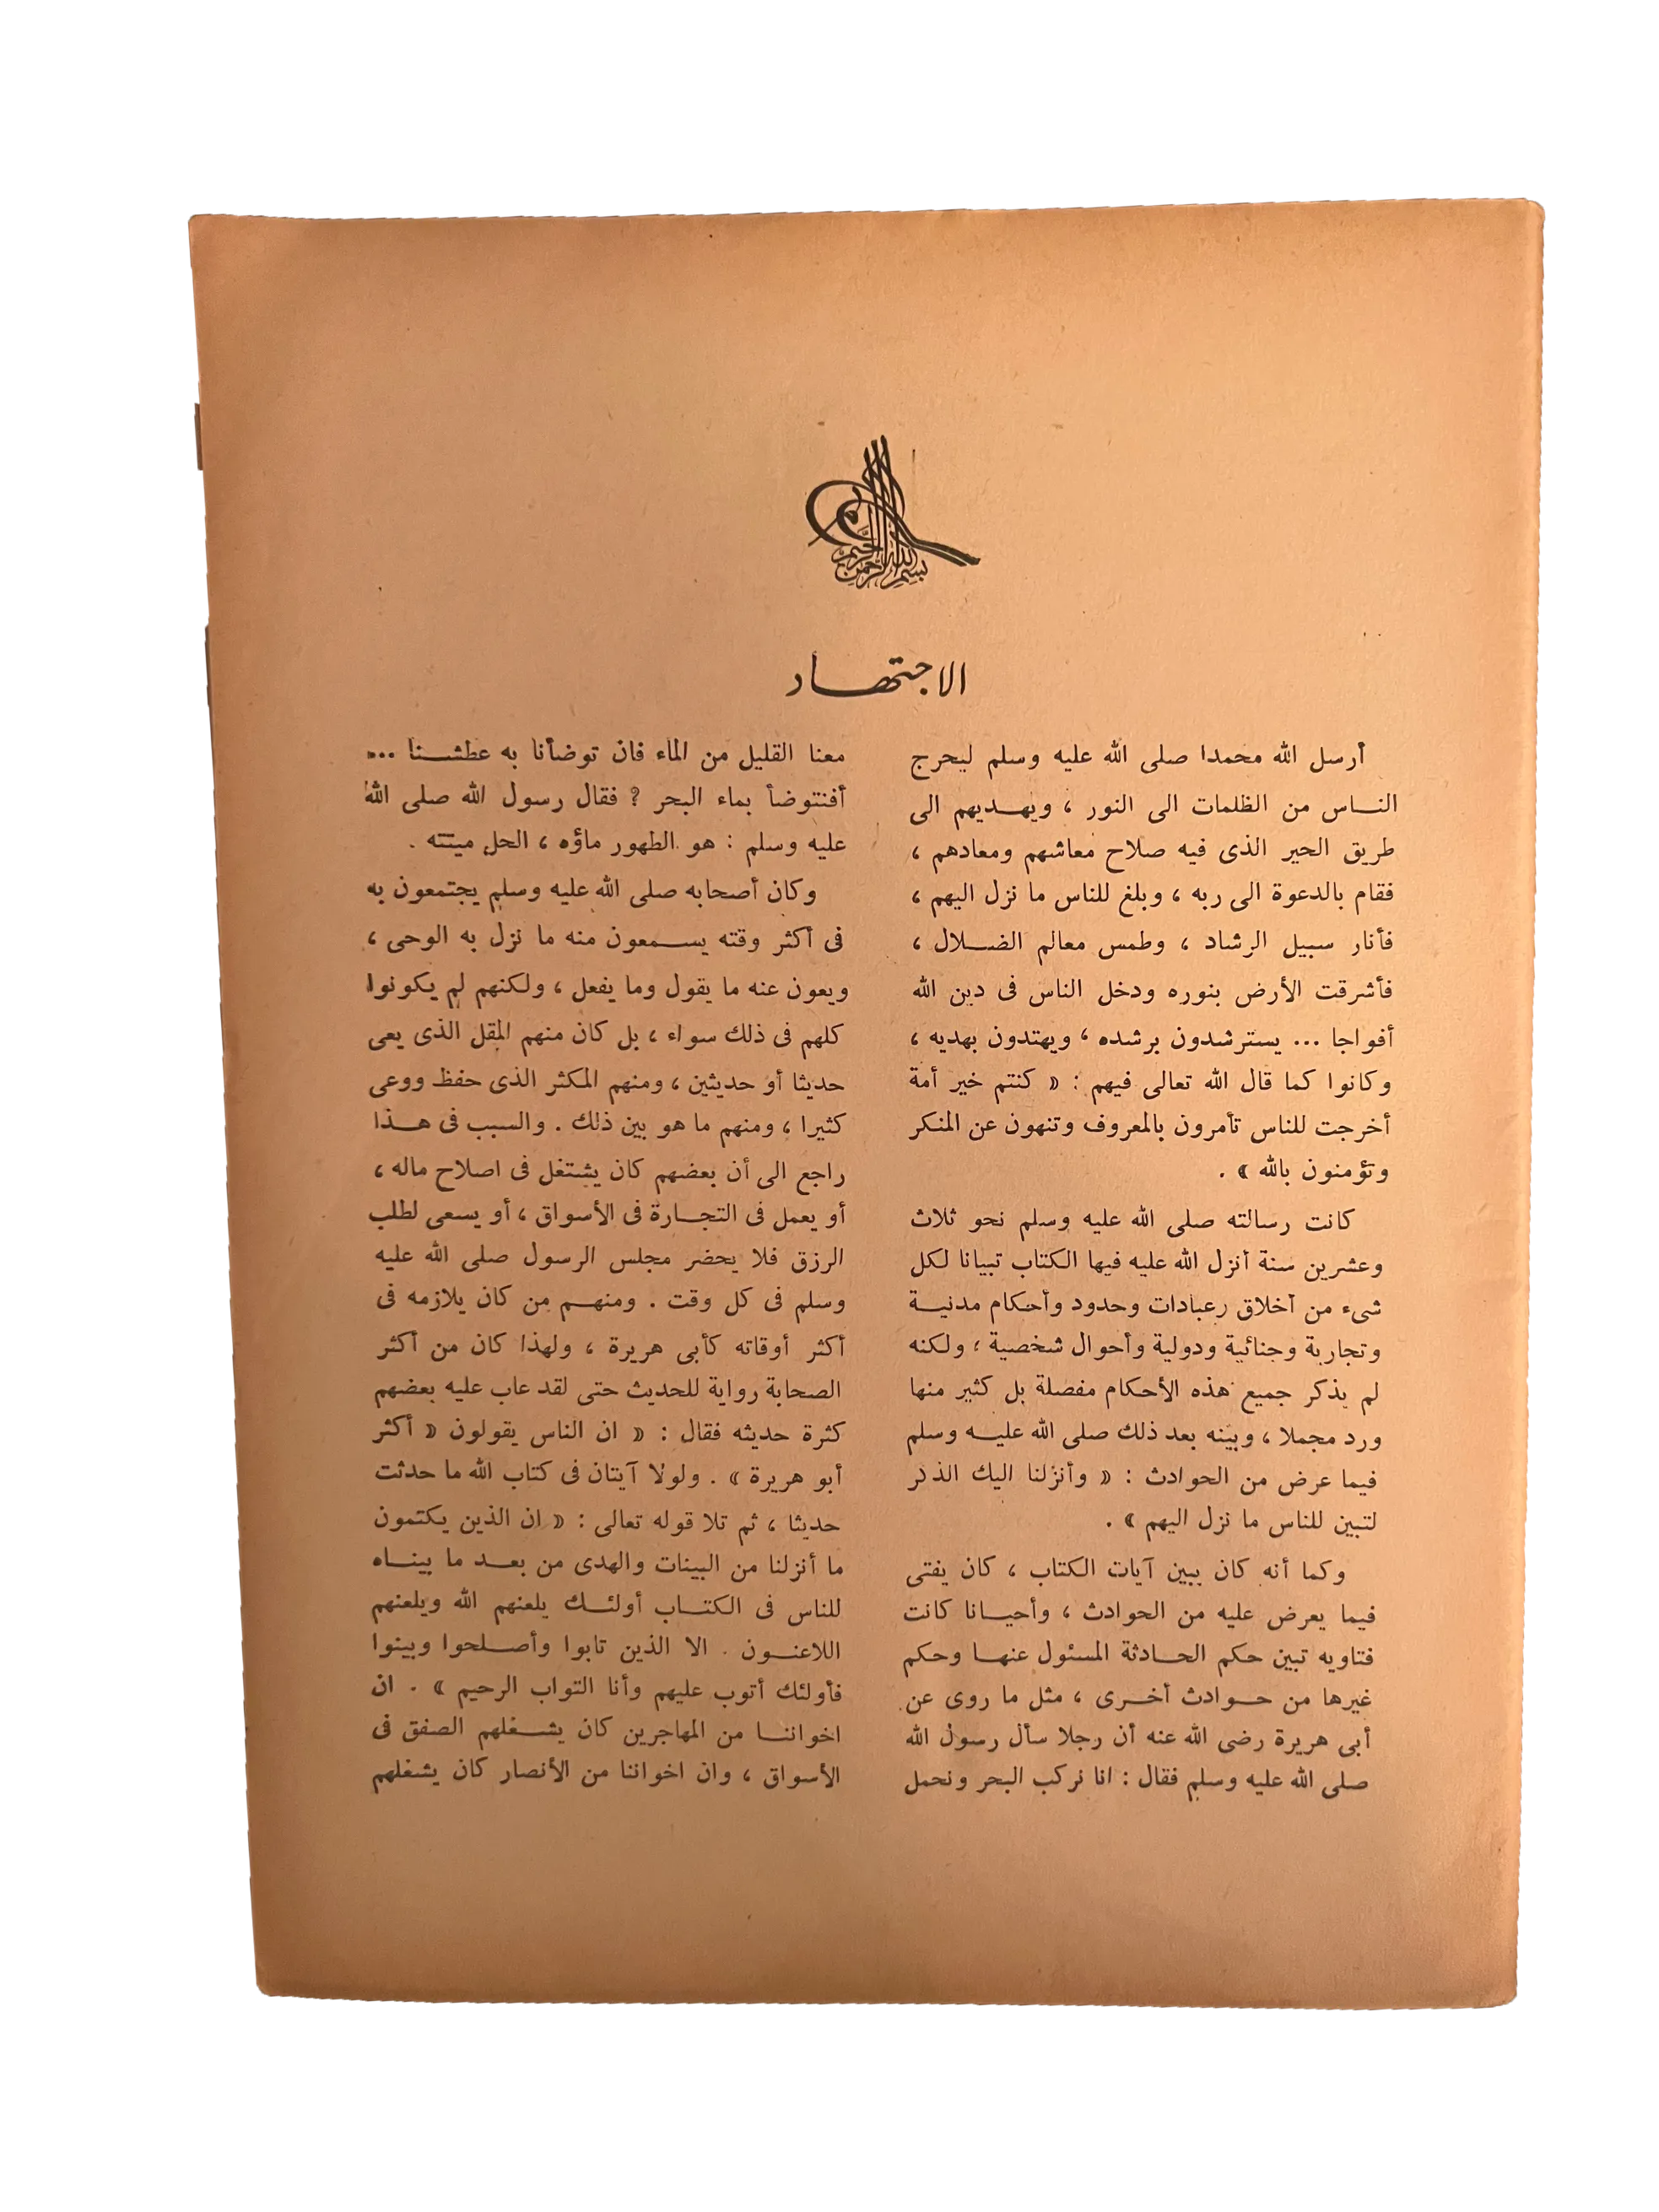 بسم الله الرحمن الرحيم
الاجتهاد
أرسل الله محمدا صلى الله عليه وسلم ليخرج
الناس من الظلمات الى النور ، ويهديهم الى
طريق الخير الذى فيه صلاح معاشهم ومعادهم ،
فقام بالدعوة الى ربه ، وبلغ للناس ما نزل اليهم ،
فأنار سبيل الرشاد ، وطمس معالم الضلال ،
فأشرقت الأرض بنوره ودخل الناس فى دين الله
أفواجا ... يسترشدون برشده ، ويهتدون بهديه ،
وكانوا كما قال الله تعالى فيهم : « كنتم خير أمة
أخرجت للناس تأمرون بالمعروف وتنهون عن المنكر
وتؤمنون بالله » .
كانت رسالته صلى الله عليه وسلم نحو ثلاث
وعشرين سنة أنزل الله عليه فيها الكتاب تبيانا لكل
شىء من أخلاق وعبادات وحدود وأحكام مدنية
وتجارية وجنائية ودولية وأحوال شخصية ، ولكنه
لم يذكر جميع هذه الأحكام مفصلة بل كثير منها
ورد مجملا ، وبينه بعد ذلك صلى الله عليه وسلم
فيما عرض من الحوادث : « وأنزلنا اليك الذكر
لتبين للناس ما نزل اليهم » .
وكما أنه كان يبين آيات الكتاب ، كان يفتى
فيما يعرض عليه من الحوادث ، وأحيانا كانت
فتاويه تبين حكم الحادثة المسئول عنها وحكم
غيرها من حوادث أخرى ، مثل ما روى عن
أبى هريرة رضى الله عنه أن رجلا سأل رسول الله
صلى الله عليه وسلم فقال : انا نركب البحر ونحمل
معنا القليل من الماء فان توضأنا به عطشنا ...
أفنتوضأ بماء البحر ? فقال رسول الله صلى الله
عليه وسلم : هو الطهور ماؤه ، الحل ميتته .
وكان أصحابه صلى الله عليه وسلم يجتمعون به
فى أكثر وقته يسمعون منه ما نزل به الوحى ،
ويعون عنه ما يقول وما يفعل ، ولكنهم لم يكونوا
كلهم فى ذلك سواء ، بل كان منهم المقل الذى يعى
حديثا أو حديثين ، ومنهم المكثر الذى حفظ ووعى
كثيرا ، ومنهم ما هو بين ذلك . والسبب فى هذا
راجع الى أن بعضهم كان يشتغل فى اصلاح ماله ،
أو يعمل فى التجارة فى الأسواق ، أو يسعى لطلب
الرزق فلا يحضر مجلس الرسول صلى الله عليه
وسلم فى كل وقت . ومنهم من كان يلازمه فى
أكثر أوقاته كأبى هريرة ، ولهذا كان من أكثر
الصحابة رواية للحديث حتى لقد عاب عليه بعضهم
كثرة حديثه فقال : « ان الناس يقولون « أكثر
أبو هريرة » . ولولا آيتان فى كتاب الله ما حدثت
حديثا ، ثم تلا قوله تعالى : « ان الذين يكتمون
ما أنزلنا من البينات والهدى من بعد ما بيناه
للناس فى الكتاب أولئك يلعنهم الله ويلعنهم
اللاعنون . الا الذين تابوا وأصلحوا وبينوا
فأولئك أتوب عليهم وأنا التواب الرحيم » . ان
اخواننا من المهاجرين كان يشغلهم الصفق فى
الأسواق ، وان اخواننا من الأنصار كان يشغلهم